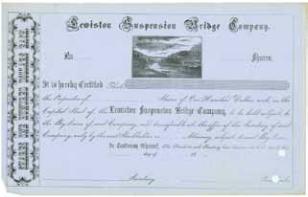 Lewiston Suspension Bridge Company.
No Shares.
It is hereby Certified That
the Proprietor of Shares of One Hundred Dollars each in the
Capital Stock of the Lewiston Suspension Bridge Company, to be held subject to
the By-Laws of said Company and transferable at the office of the
Company only by the said Stockholder or Attorney
In Testimony Whereof, the President and
day of 18
Secretary President
SHARES ONE HUNDRED DOLLARS EACH